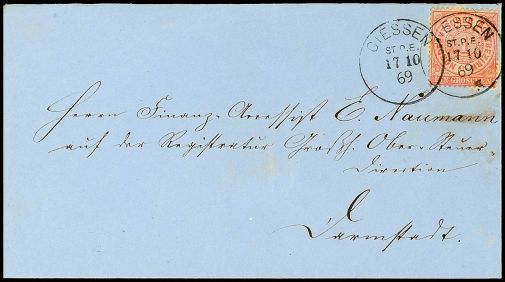 GIESSEN
ST.P.E.
17 10
69
GIESSEN
ST.P.E.
17 10
69
GROSCH
Herrn Finanz-Accessist E. Naumann
auf der Registratur Großh. Ober-Steuer-
Direction
Darmstadt.